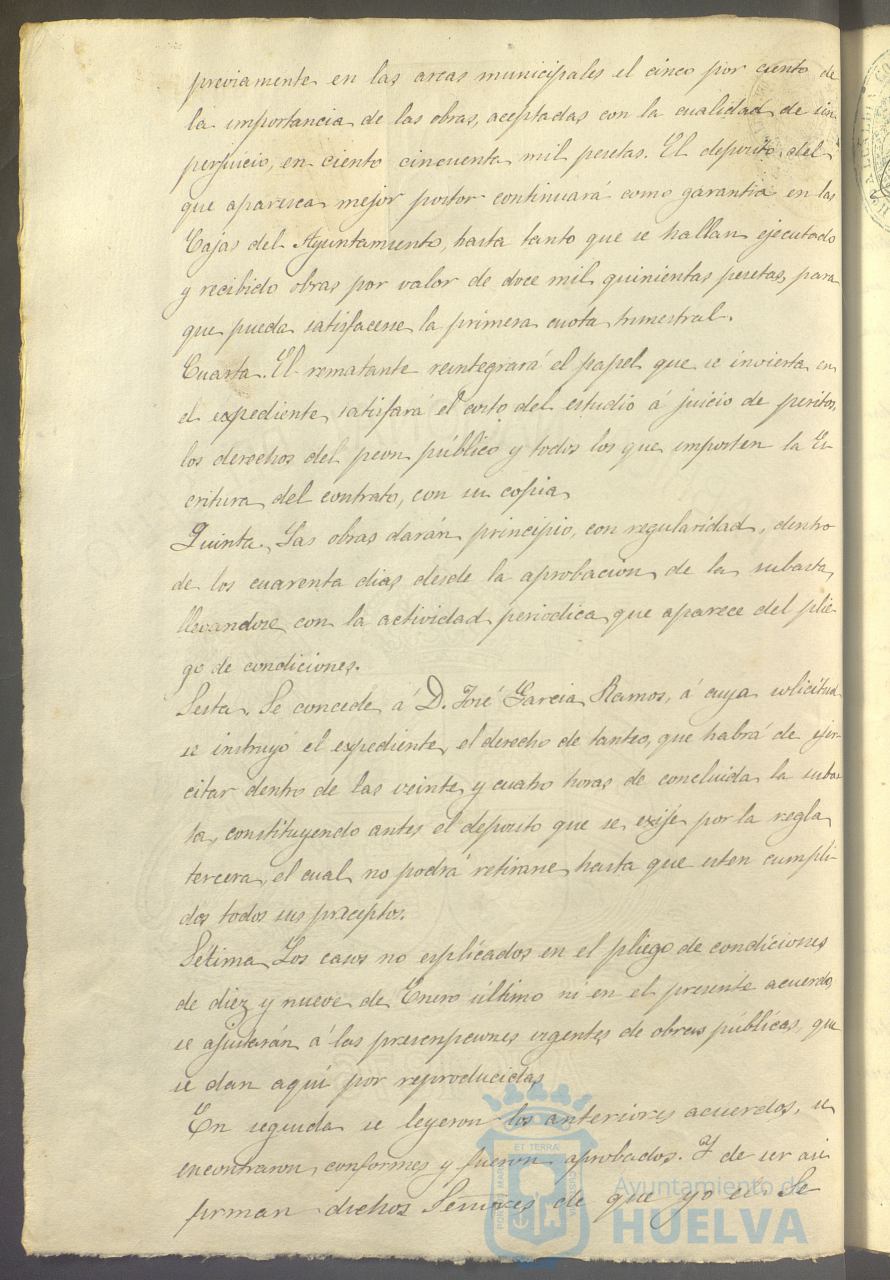 previamente en las arcas municipales el cinco por ciento de
la importancia de las obras, aceptadas con la cualidad de sin
perjuicio, en ciento cincuenta mil pesetas. El deposito del
que aparesca mejor postor continuará como garantia en las
Cajas del Ayuntamiento, hasta tanto que se hallan ejecutado
y recibido obras por valor de doce mil quinientas pesetas, para
que pueda satisfacerse la primera cuota trimestral.
Cuarta. El rematante reintegrará el papel que se invierta en
el expediente, satisfará el costo del estudio á juicio de peritos,
los derechos del peon público y todos los que importen la Es-
critura del contrato, con su copia,
Quinta. Las obras darán principio, con regularidad, dentro
de los cuarenta dias desde la aprobación de la subasta,
llevandose con la actividad periodica que aparece del plie-
go de condiciones.
Sesta. Se concede á D. José Garcia Ramos, á cuya solicitud
se instruyó el expediente, el derecho de tanteo, que habrá de ejer-
citar dentro de las veinte y cuatro horas de concluida la subas-
ta, constituyendo antes el deposito que se exije por la regla
tercera, el cual no podrá retirarse hasta que esten cumpli-
dos todos sus preceptos.
Sétima Los casos no esplicados en el pliego de condiciones
de diez y nueve de Enero último ni en el presente acuerdo,
se ajustarán á las prescripciones vigentes de obras públicas, que
se dan aquí por reproducidas
En seguida se leyeron los anteriores acuerdos, se
encontraron conformes y fueron aprobados. Y de ser asi
firman dichos Señores de que yo el Se
ET TERRA
Ayuntamiento de
HUELVA